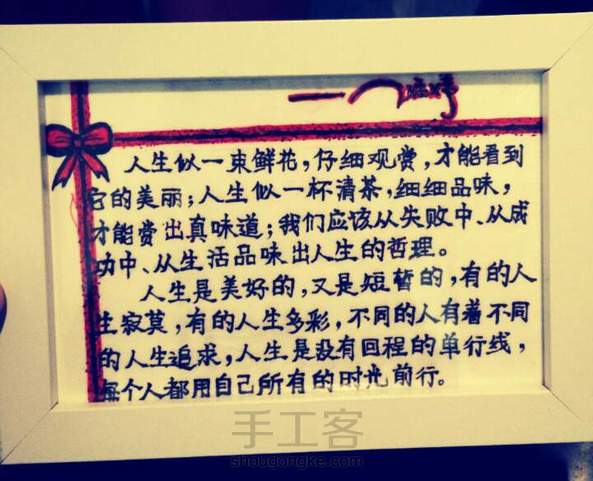 人生似一束鲜花，仔细观赏，才能看到
它的美丽；人生似一杯清茶，细细品味，
才能赏出真味道；我们应该从失败中、从成
功中、从生活品味出人生的哲理。
人生是美好的，又是短暂的，有的人
生寂莫，有的人生多彩，不同的人有着不同
的人生追求，人生是没有回程的单行线，
每个人都用自己所有的时光前行。
手工客
shougongke.com